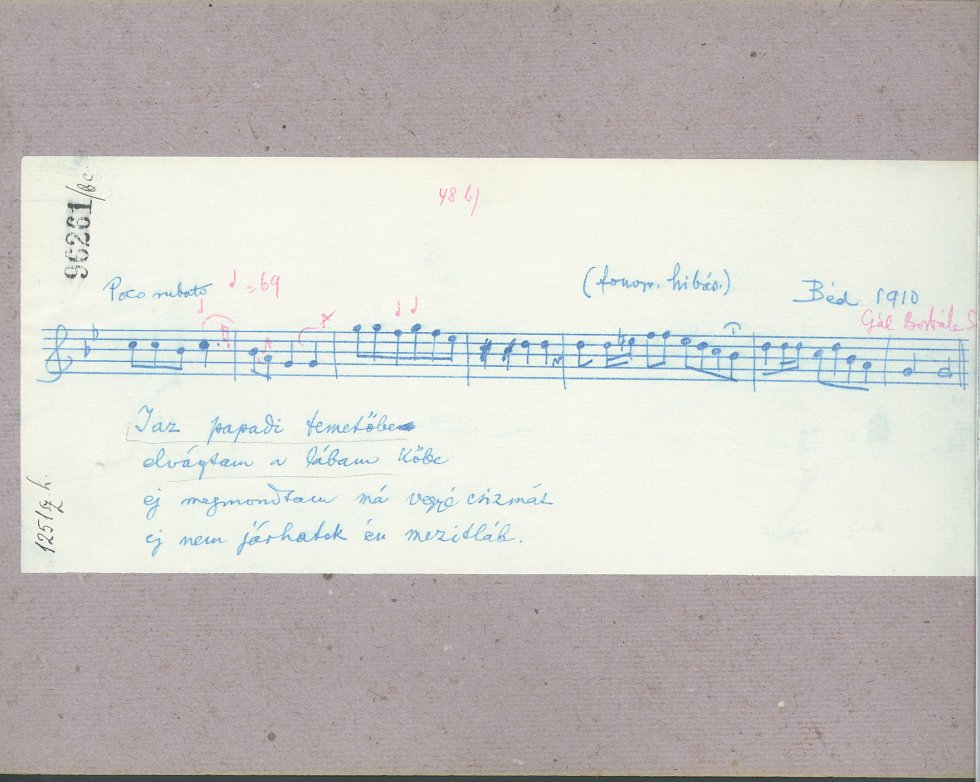 96261/bc.
48 b)
Poco rubato ♩ = 69
(fonogr. hibás.)
Béd 1910
Gál Borbála
I az papadi temetőbe
elvágtam a lábam kőbe
ej megmondtam má vegyé csizmát
ej nem járhatok én mezítláb.